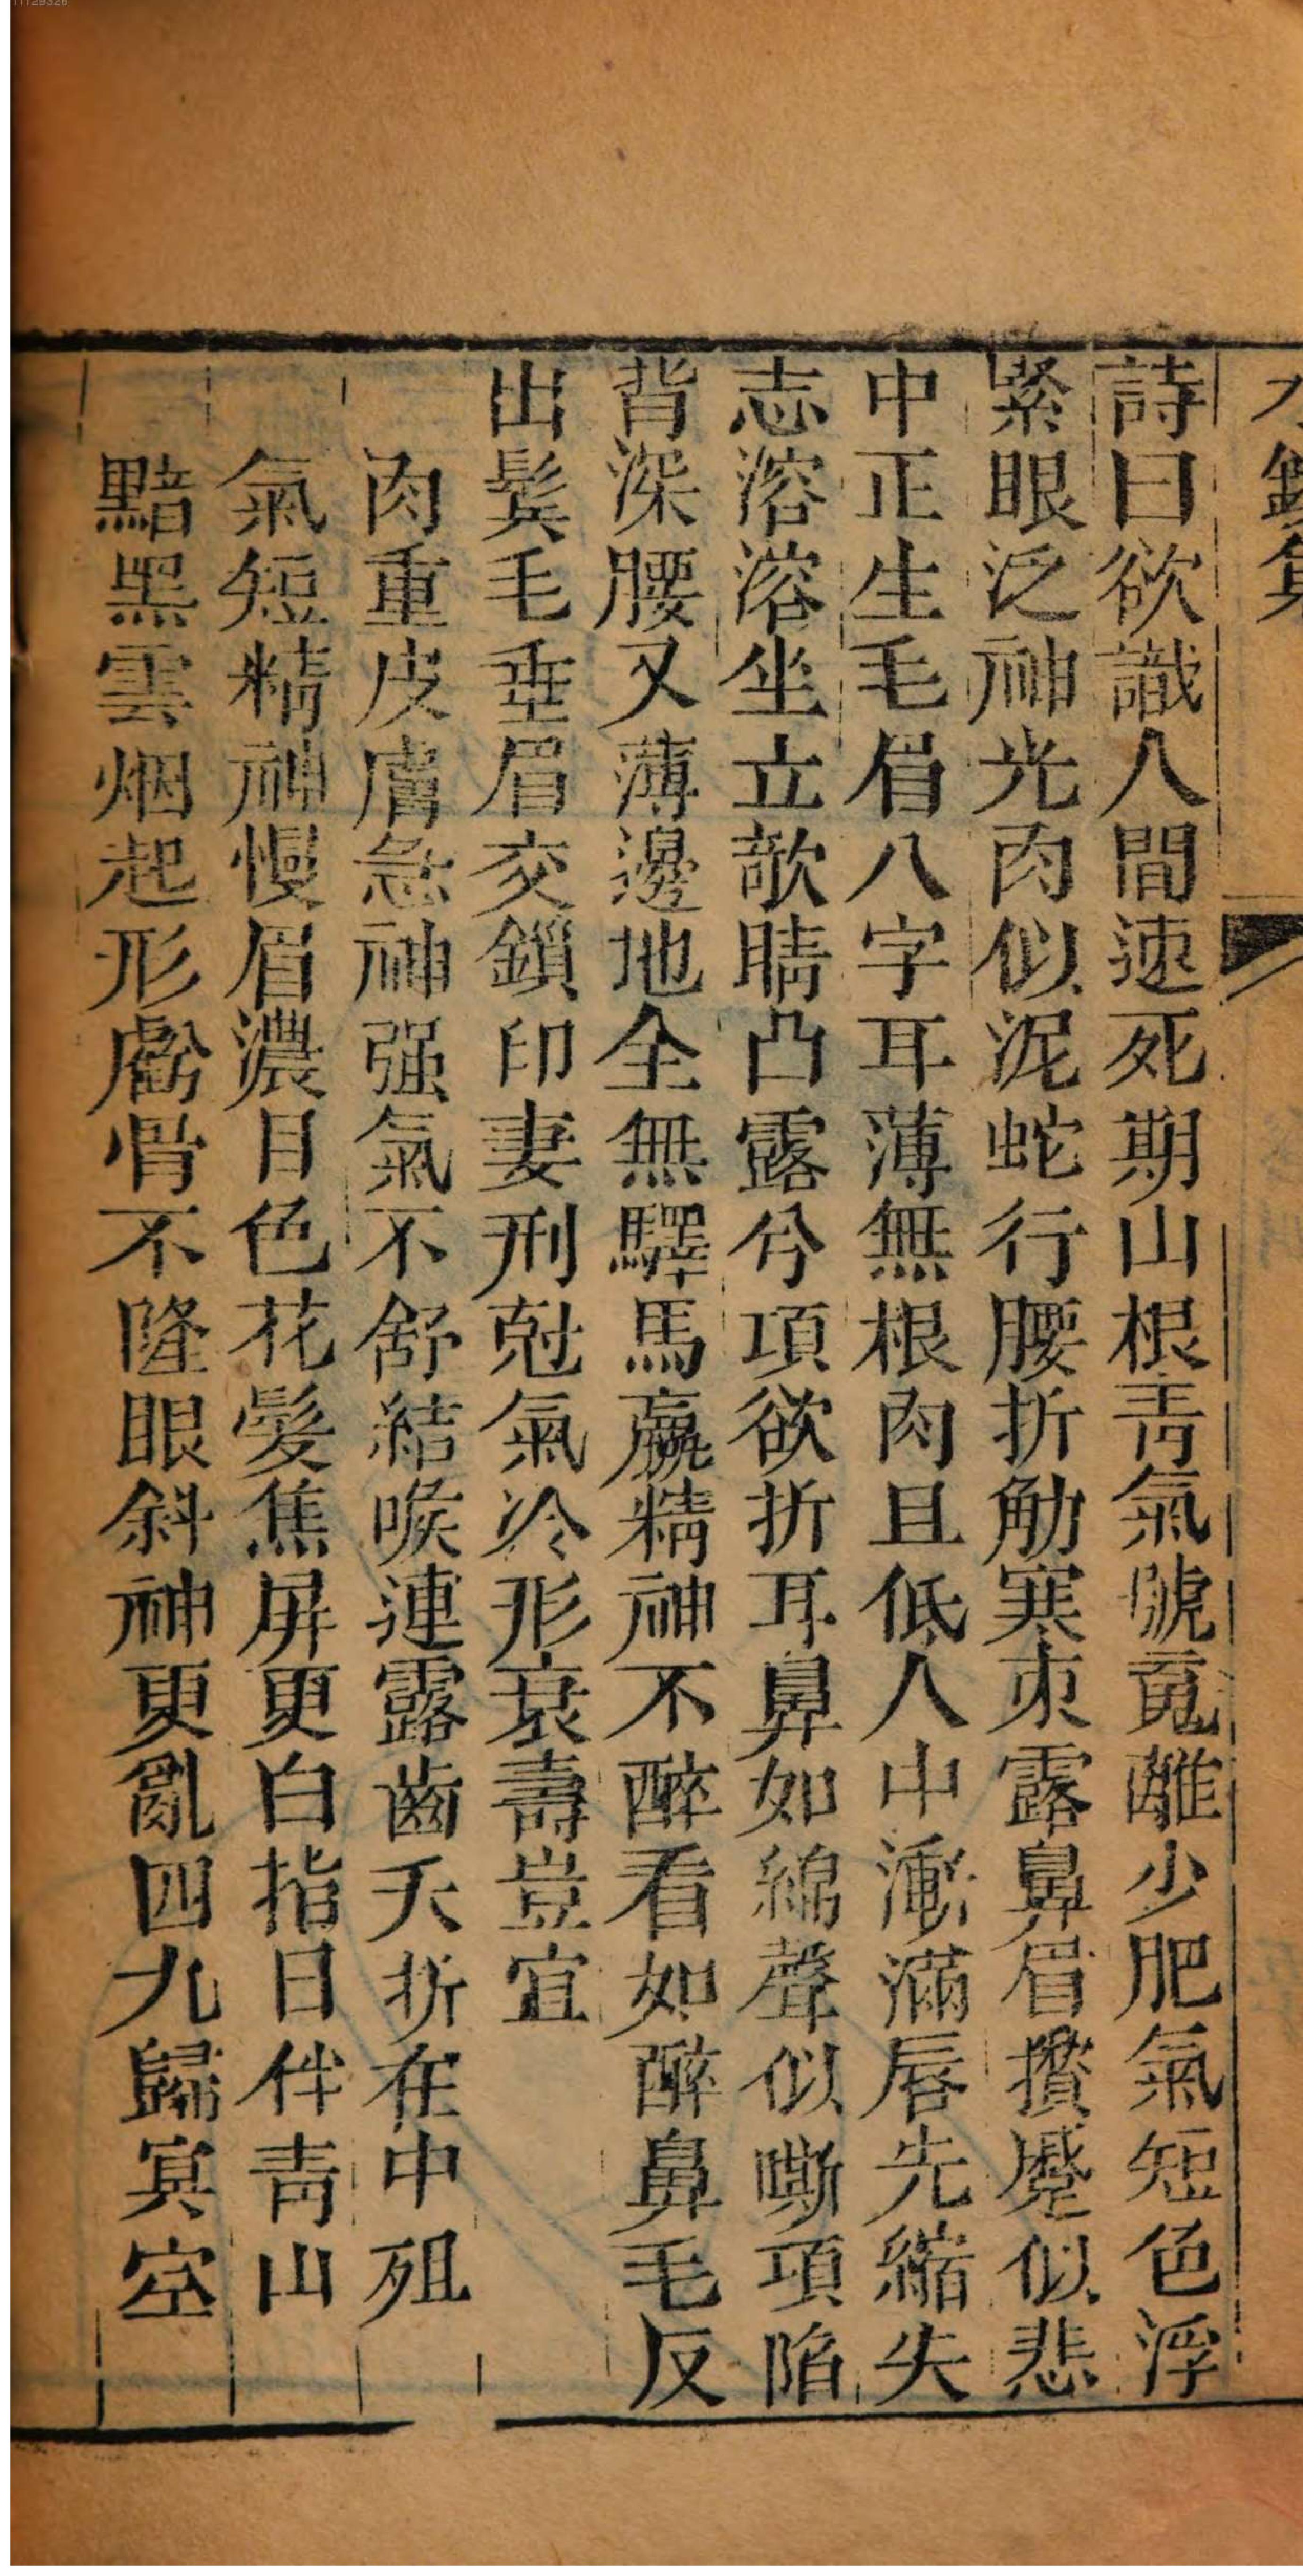 11129326
詩曰欲識人間速死期山根靑氣號䰟離少肥氣短色浮
緊眼泛神光肉似泥蛇行腰折觔寒束露鼻眉攅蹙似悲
中正生毛眉八字耳薄無根肉且低人中漸滿唇先縮失
志溶溶坐立欹睛凸露兮項欲折耳鼻如綿聲似嘶項陷
背深腰又薄邊地全無驛馬羸精神不醉看如醉鼻毛反
出鬂毛垂眉交鎖印妻刑尅氣冷形衰壽豈宜
肉重皮膚急神强氣不舒結喉連露齒夭折在中殂
氣短精神慢眉濃目色花髮焦屏更白指日伴靑山
黯黑雲烟起形虧骨不隆眼斜神更亂四九歸冥空